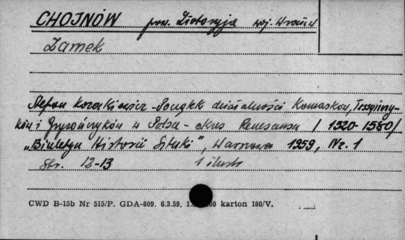 CHOJNÓW pow. Złotoryja woj. Wrocław
Zamek
Stefan Kozakiewicz - Początek działalności Komasków, Tessyńczy-
ków i Gryzończyków w Polsce - okres Renesansu / 1520-1580/
"Biuletyn Historii Sztuki", Warszawa 1959, Nr. 1
Str. 12-13 1 ilustr
CWD B-15b Nr 515/P. GDA-809. 6.3.59, karton 180/V.